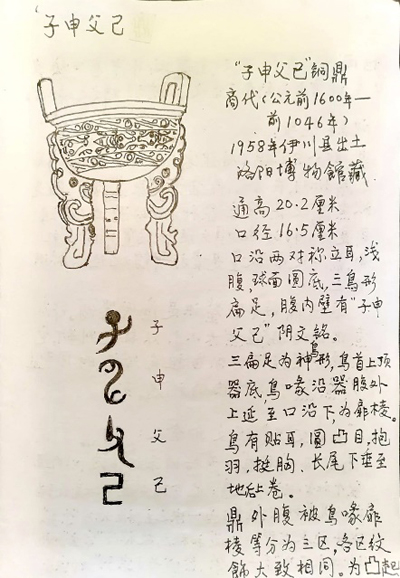 ‘子申父己
“子申父己”铜鼎
商代(公元前1600年—
前1046年)
1958年伊川县出土
洛阳博物馆藏.
通高20.2厘米
口径16.5厘米
口沿两对称立耳,浅
腹,球面圆底,三鸟形
扁足,腹内壁有“子申
父己”阴文铭。
三扁足为神鸟形,鸟首上顶
器底鸟喙沿器腹外
上延至口沿下,为扉棱。
鸟有贴耳,圆凸目,抱
羽,挺胸、长尾下垂至
地后上卷。
鼎外腹被鸟喙扉
棱等分为三区,各区纹
饰大致相同。为凸起
子
申
父
己